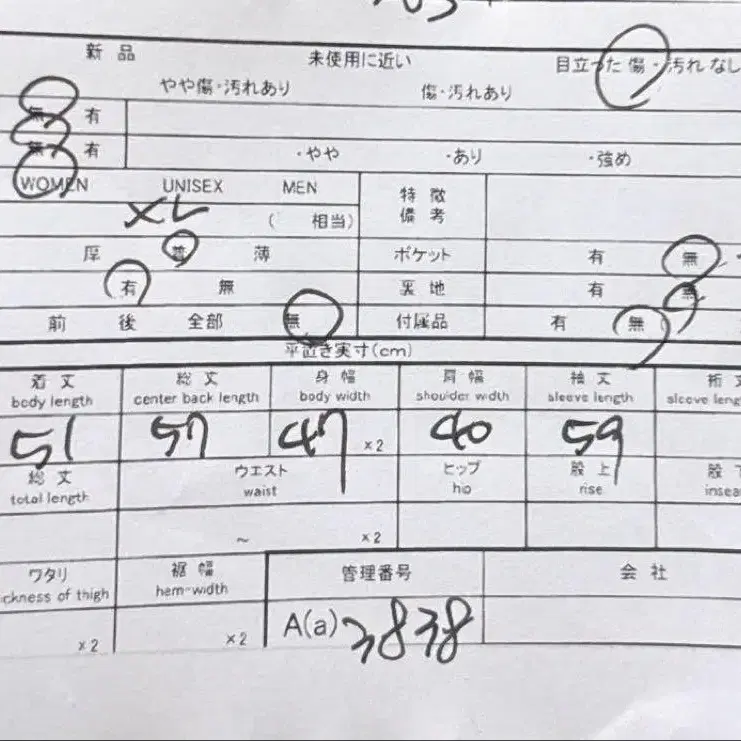 新品 未使用に近い 目立った傷・汚れなし
やや傷・汚れあり 傷・汚れあり
無 有
無 有 ・やや ・あり ・強め
WOMEN UNISEX MEN 特徴
備考
XL ( 相当)
厚 普 薄 ポケット 有 無
有 無 裏地 有 無
前 後 全部 無 付属品 有 無 (
平置き実寸(cm)
着丈 総丈 身幅 肩幅 袖丈 裄丈
body length center back length body width shoulder width sleeve length sleeve leng
51 57 47 ×2 40 59
総丈 ウエスト ヒップ 股上 股下
total length waist hip rise insea
~ ×2
ワタリ 裾幅 管理番号 会社
ckness of thigh hem-width
×2 ×2 A(a) 3838